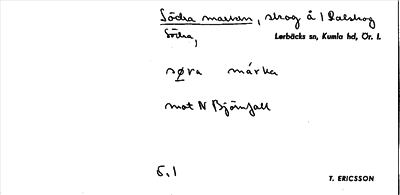 Södra marken, skog å 1 Dalskog
Södra,
Lerbäcks sn, Kumla hd, Ör. l.
søra márka
mot N Björnfall
5.1
T. ERICSSON